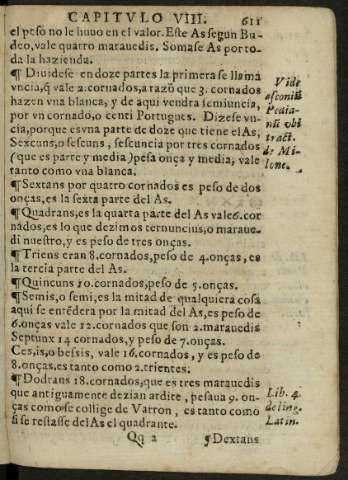 CAPITVLO VIII. 611
el peso no le huuo en el valor. Este As segun Bu-
deo, vale quatro marauedis. Somase As por to-
da la hazienda.
¶ Diuidese en doze partes la primera se llama
vncia, q̃ vale 2. cornados, a razõ que 3. cornados
hazen vna blanca, y de aqui vendra semiuncia,
por vn cornado, o centi Portugues. Dizese vn-
cia, porque es vna parte de doze que tiene el As,
Sexcuns, o sescuns, sescuncia por tres cornados
(que es parte y media) pesa onça y media, vale
tanto como vna blanca.
Vide
asconiũ
Pedia-
nũ vbi
tract.
de Mi-
lone.
¶ Sextans por quatro cornados es peso de dos
onças, es la sexta parte del As.
¶ Quadrans, es la quarta parte del As vale 6. cor
nados, es lo que dezimos ternuncius, o maraue.
di nuestro, y es peso de tres onças.
¶ Triens eran 8. cornados, peso de 4. onças, es
la tercia parte del As.
¶ Quincuns 10. cornados, peso de 5. onças.
¶ Semis, o semi, es la mitad de qualquiera cosa
aqui se entẽdera por la mitad del As, es peso de
6. onças vale 12. cornados que son 2. marauedis
Septunx 14 cornados, y peso de 7. onças.
Ces, is, o bessis, vale 16. cornados, y es peso de
8. onças, es tanto como 2. trientes.
¶ Dodrans 18. cornados, que es tres marauedis
que antiguamente dezian ardite, pesaua 9. on-
ças como se collige de Varron, es tanto como
si se restasse del As el quadrante.
Lib. 4.
de ling.
Latin.
Qq 2 ¶ Dextans